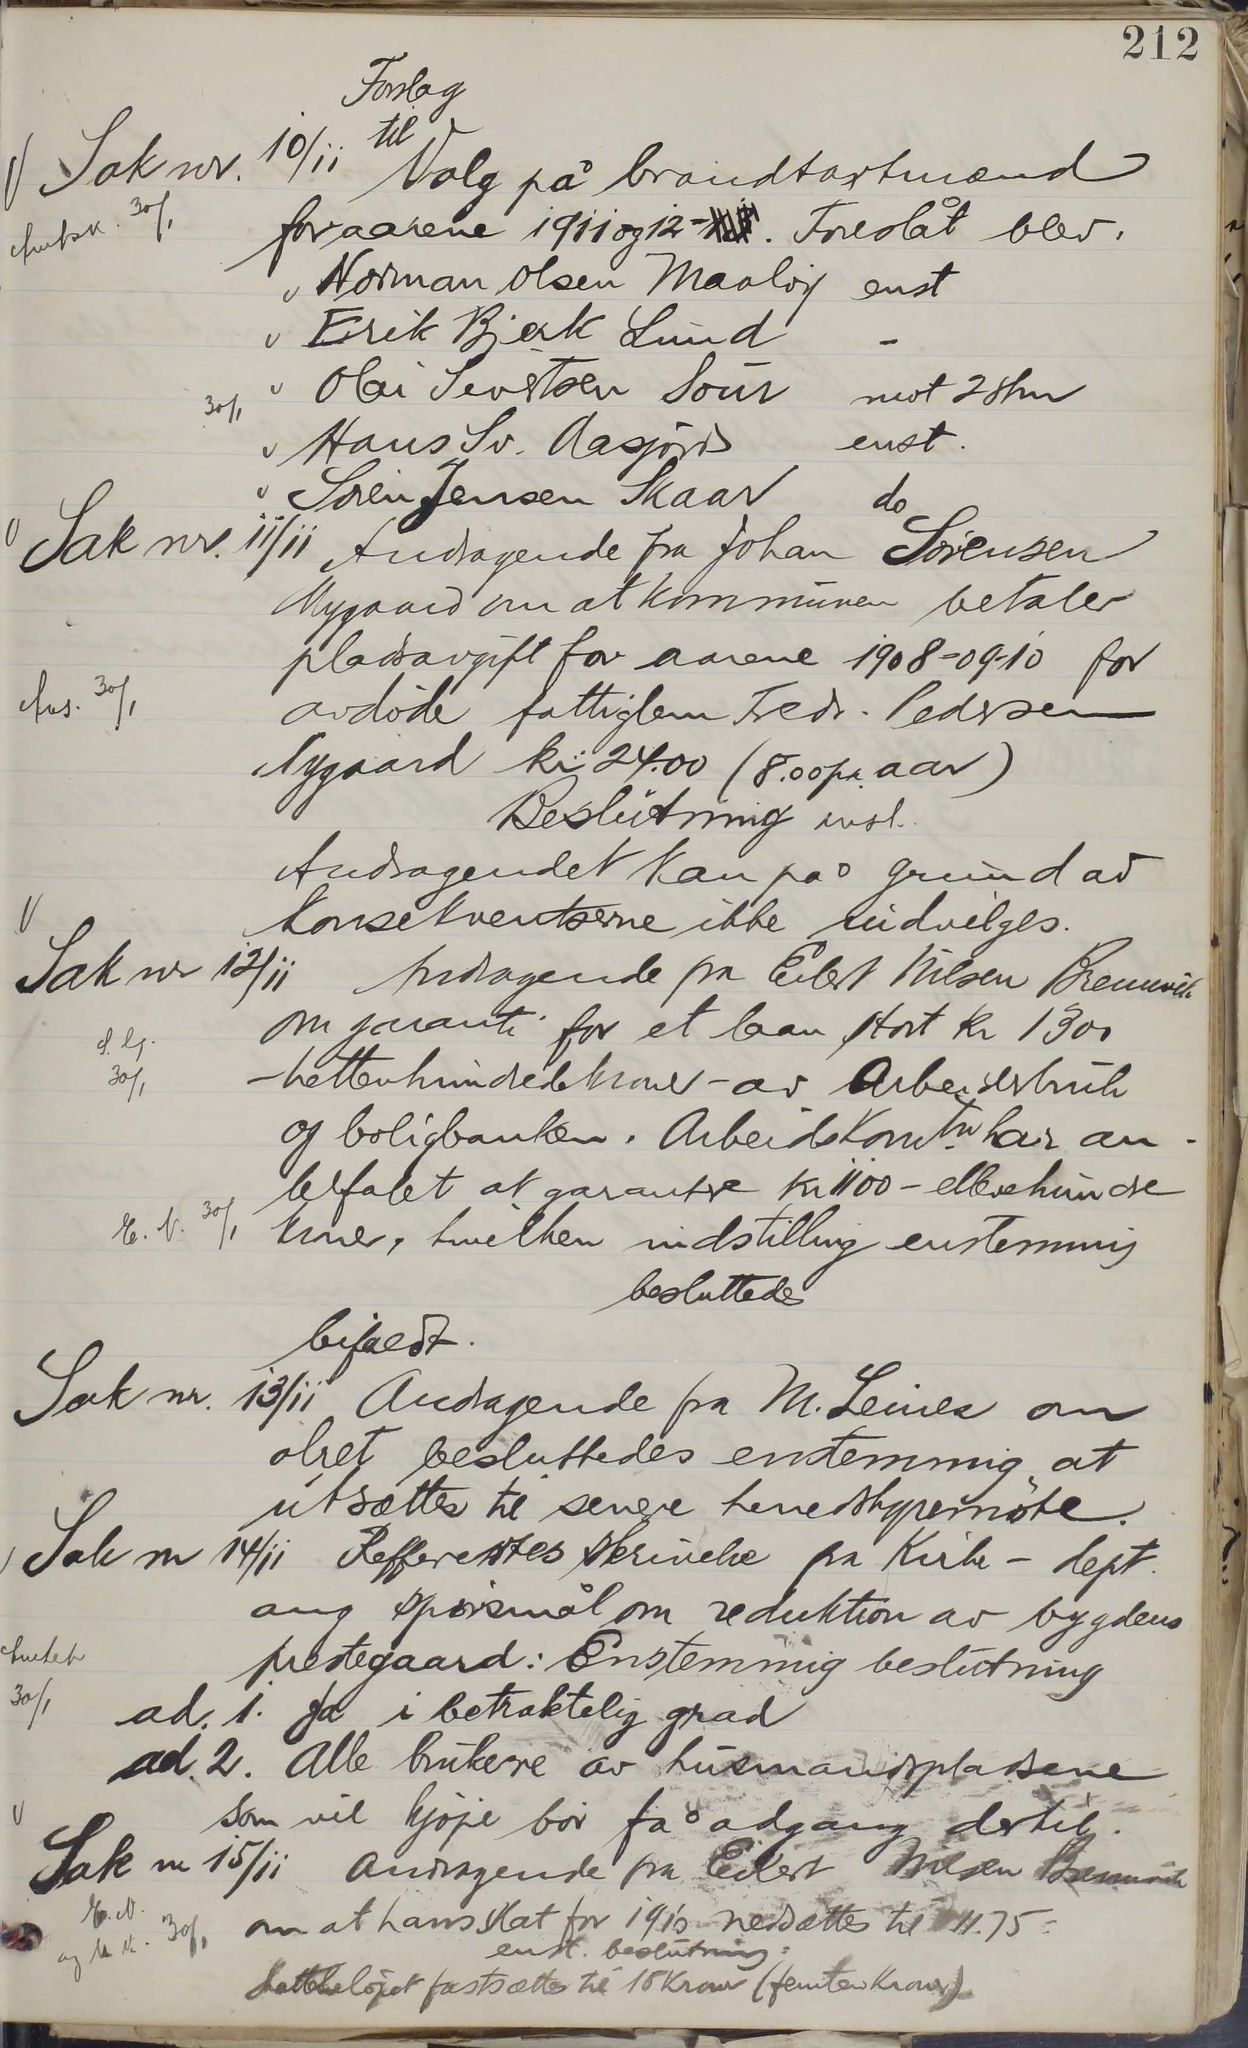 212
Forslag
til
Sak nr. 10/11 Valg på brandtaxtmænd
for aarene 1911 og 12 -. Foreslåt blev.
Norman Olsen Maaløy enst
Erik Bjerk Lund -
Olai Sivertsen Sour mot 2 stm
30/1
Hans Sv. Aasjord enst.
Sören Jensen Skaar do
Sak nr. 11/11 Andragende fra Johan Sörensen
Nygaard om at kommunen betaler
pladsavgift for aarene 1908-09-10 for
30/1
avdöde fattiglem Fredr. Pedersen
Nygaard kr 24.00 (8.00 pr. aar)
Beslutning enst.
Andragendet kan på grund av
konsekventserne ikke indvilges.
Sak nr 12/11 Andragende fra Eilert Nilsen Bremvik
om garanti for et laan stort kr 1300
30/1
-trettenhundredekroner- av Arbeiderbruk
og boligbanken. Arbeidskomtn har an-
befalet at garantere kr 1100 - ellevehundre
E. N. 30/1
kroner, hvilken indstilling enstemmig
besluttedes
bifaldt.
Sak nr. 13/11 Andragende fra M. Leines om
ölret besluttedes enstemmig at
utsættes til senere herredstyremöte.
Sak nr 14/11 Reffereertes skrivelse fra Kirke-dept.
ang spörsmål om reduktion av bygdens
prestegaard: Enstemmig beslutning
30/1
ad. 1. Ja i betraktelig grad
ad. 2. Alle brukere av husmandspladsene
som vil kjöpe bör få adgang dertil.
Sak nr 15/11 Andragende fra Eilert Nilsen Bremvik
E. N.
om at hans skat for 1910 nedsættes til 11.75-
og k. k. 30/1
enst. beslutning:
Skattebelöpet fastsættes til 15 kroner (femten kroner)